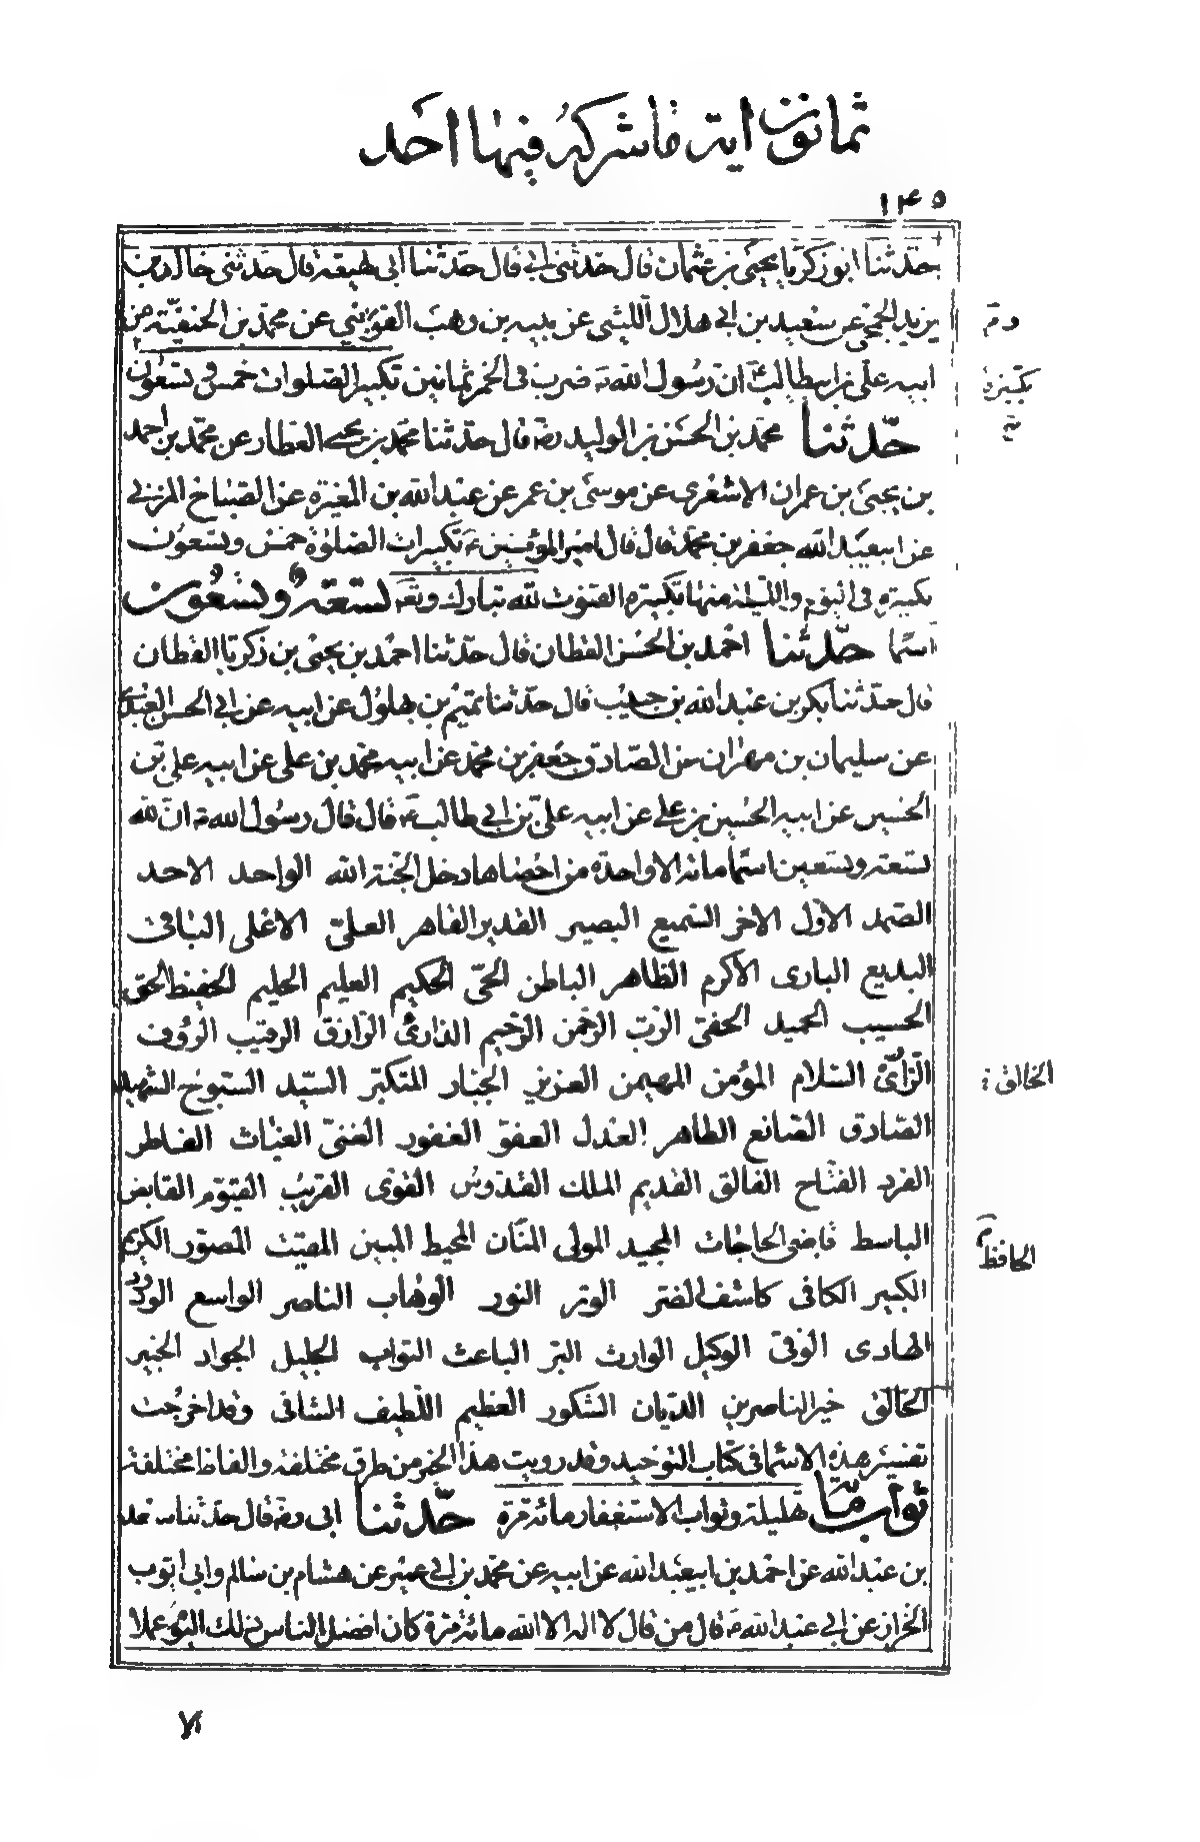 ثمانون اية ما شركه فيها احد
١٤٥
حدثنا ابو زكريا يحيى بن عثمان قال حدثني ابي قال حدثنا ابن لهيعة قال حدثني خالد بن
يزيد الجمحي عن سعيد بن ابي هلال الليثي عن بنيه بن وهب عن محمد بن الحنفية عن
ابيه علي بن ابيطالب ع ان رسول الله ص ضرب في الخمر ثمانين تكبير الصلوات خمس و تسعون
حدثنا محمد بن الحسن بن الوليد رضه قال حدثنا محمد بن يحيى العطار عن محمد بن احمد
بن يحيى بن عمران الاشعري عن موسى بن عمر عن عبد الله بن المغيرة عن الصباح المزني
عن ابيعبد الله جعفر بن محمد قال قال امير المؤمنين ع تكبيرات الصلوة خمس وتسعون
تكبيرة في اليوم والليلة منها تكبيرة القنوت لله تبارك وتعه تسعة وتسعون
اسما حدثنا احمد بن الحسن القطان قال حدثنا احمد بن يحيى بن زكريا القطان
قال حدثنا بكر بن عبد الله بن حبيب قال حدثنا تميم بن بهلول عن ابيه عن ابي الحسن العبدي
عن سليمان بن مهران عن الصادق جعفر بن محمد عن ابيه محمد بن علي عن ابيه علي بن
الحسين عن ابيه الحسين بن علي عن ابيه علي بن ابي طالب ع قال قال رسول الله ص ان لله
تسعة وتسعين اسما مائة الا واحدة من احصاها دخل الجنة الله الواحد الاحد
الصمد الاول الاخر السميع البصير القدير القاهر العلي الاعلى الباقي
البديع البارى الاكرم الظاهر الباطن الحي الحكيم العليم الحليم الحفيظ الحق
الحسيب الحميد الحفي الرب الرحمن الرحيم الذارئ الرازق الرقيب الرؤف
الرائى السلام المؤمن المهيمن العزيز الجبار المتكبر السيد السبوح الشهيد
الصادق الصانع الطاهر العدل العفو الغفور الغني الغياث الفاطر
الفرد الفتاح الفالق القديم الملك القدوس القوى القريب القيوم القابض
الباسط قاضي الحاجات المجيد المولى المنان المحيط المبين المقيت المصور الكريم
الكبير الكافي كاشف الضر الوتر النور الوهاب الناصر الواسع الودود
الهادى الوفي الوكيل الوارث البر الباعث التواب الجليل الجواد الخبير
الخالق خير الناصرين الديان الشكور العظيم اللطيف الشافى وقد اخرجت
تفسير هذه الاسما في كتاب التوحيد وقد رويت هذا الخبر من طرق مختلفة والفاظ مختلفة
ثواب مائة تهليلة وثواب الاستغفار مائة مرة حدثنا ابى رضه قال حدثنا سعد
بن عبد الله عن احمد بن ابيعبد الله عن ابيه عن محمد بن ابي عمير عن هشام بن سالم وابى ايوب
الخزاز عن ابي عبد الله ع قال من قال لا اله الا الله مائة مرة كان افضل الناس ذلك اليوم عملا
تكبيرة
الخالق
الحافظ
الا